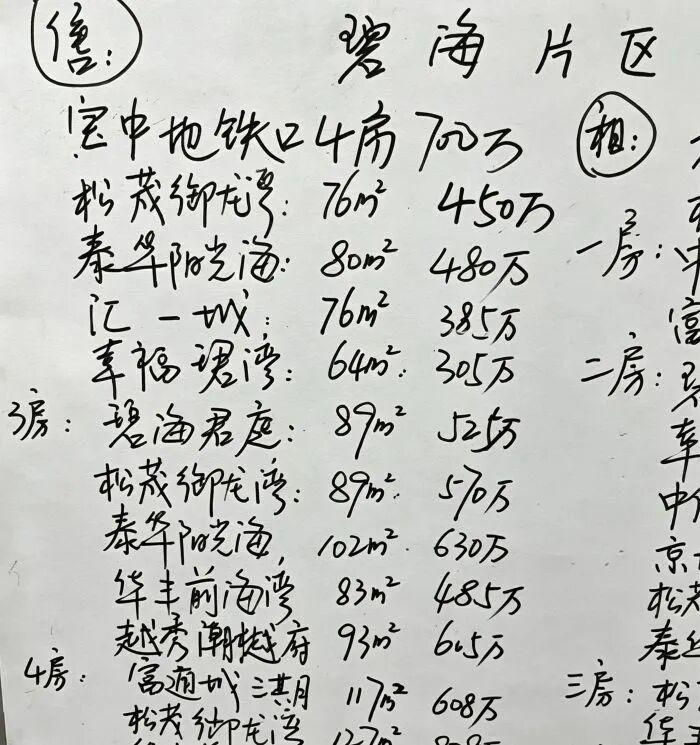 售: 碧海片区
宝中地铁口4房700万
松茂御龙湾: 76m² 450万
泰华阳光海: 80m² 480万
汇一城: 76m² 385万
幸福珺湾: 64m². 305万
3房: 碧海君庭: 89m² 525万
松茂御龙湾: 89m². 570万
泰华阳光海, 102m². 630万
华丰前海湾 83m² 485万
越秀潮樾府 93m² 605万
4房: 富通城三期 117m² 608万
松茂御龙湾 127m²
租:
一房: 中
富
二房: 碧
幸
中
京
松茂
泰华
三房: 松
华